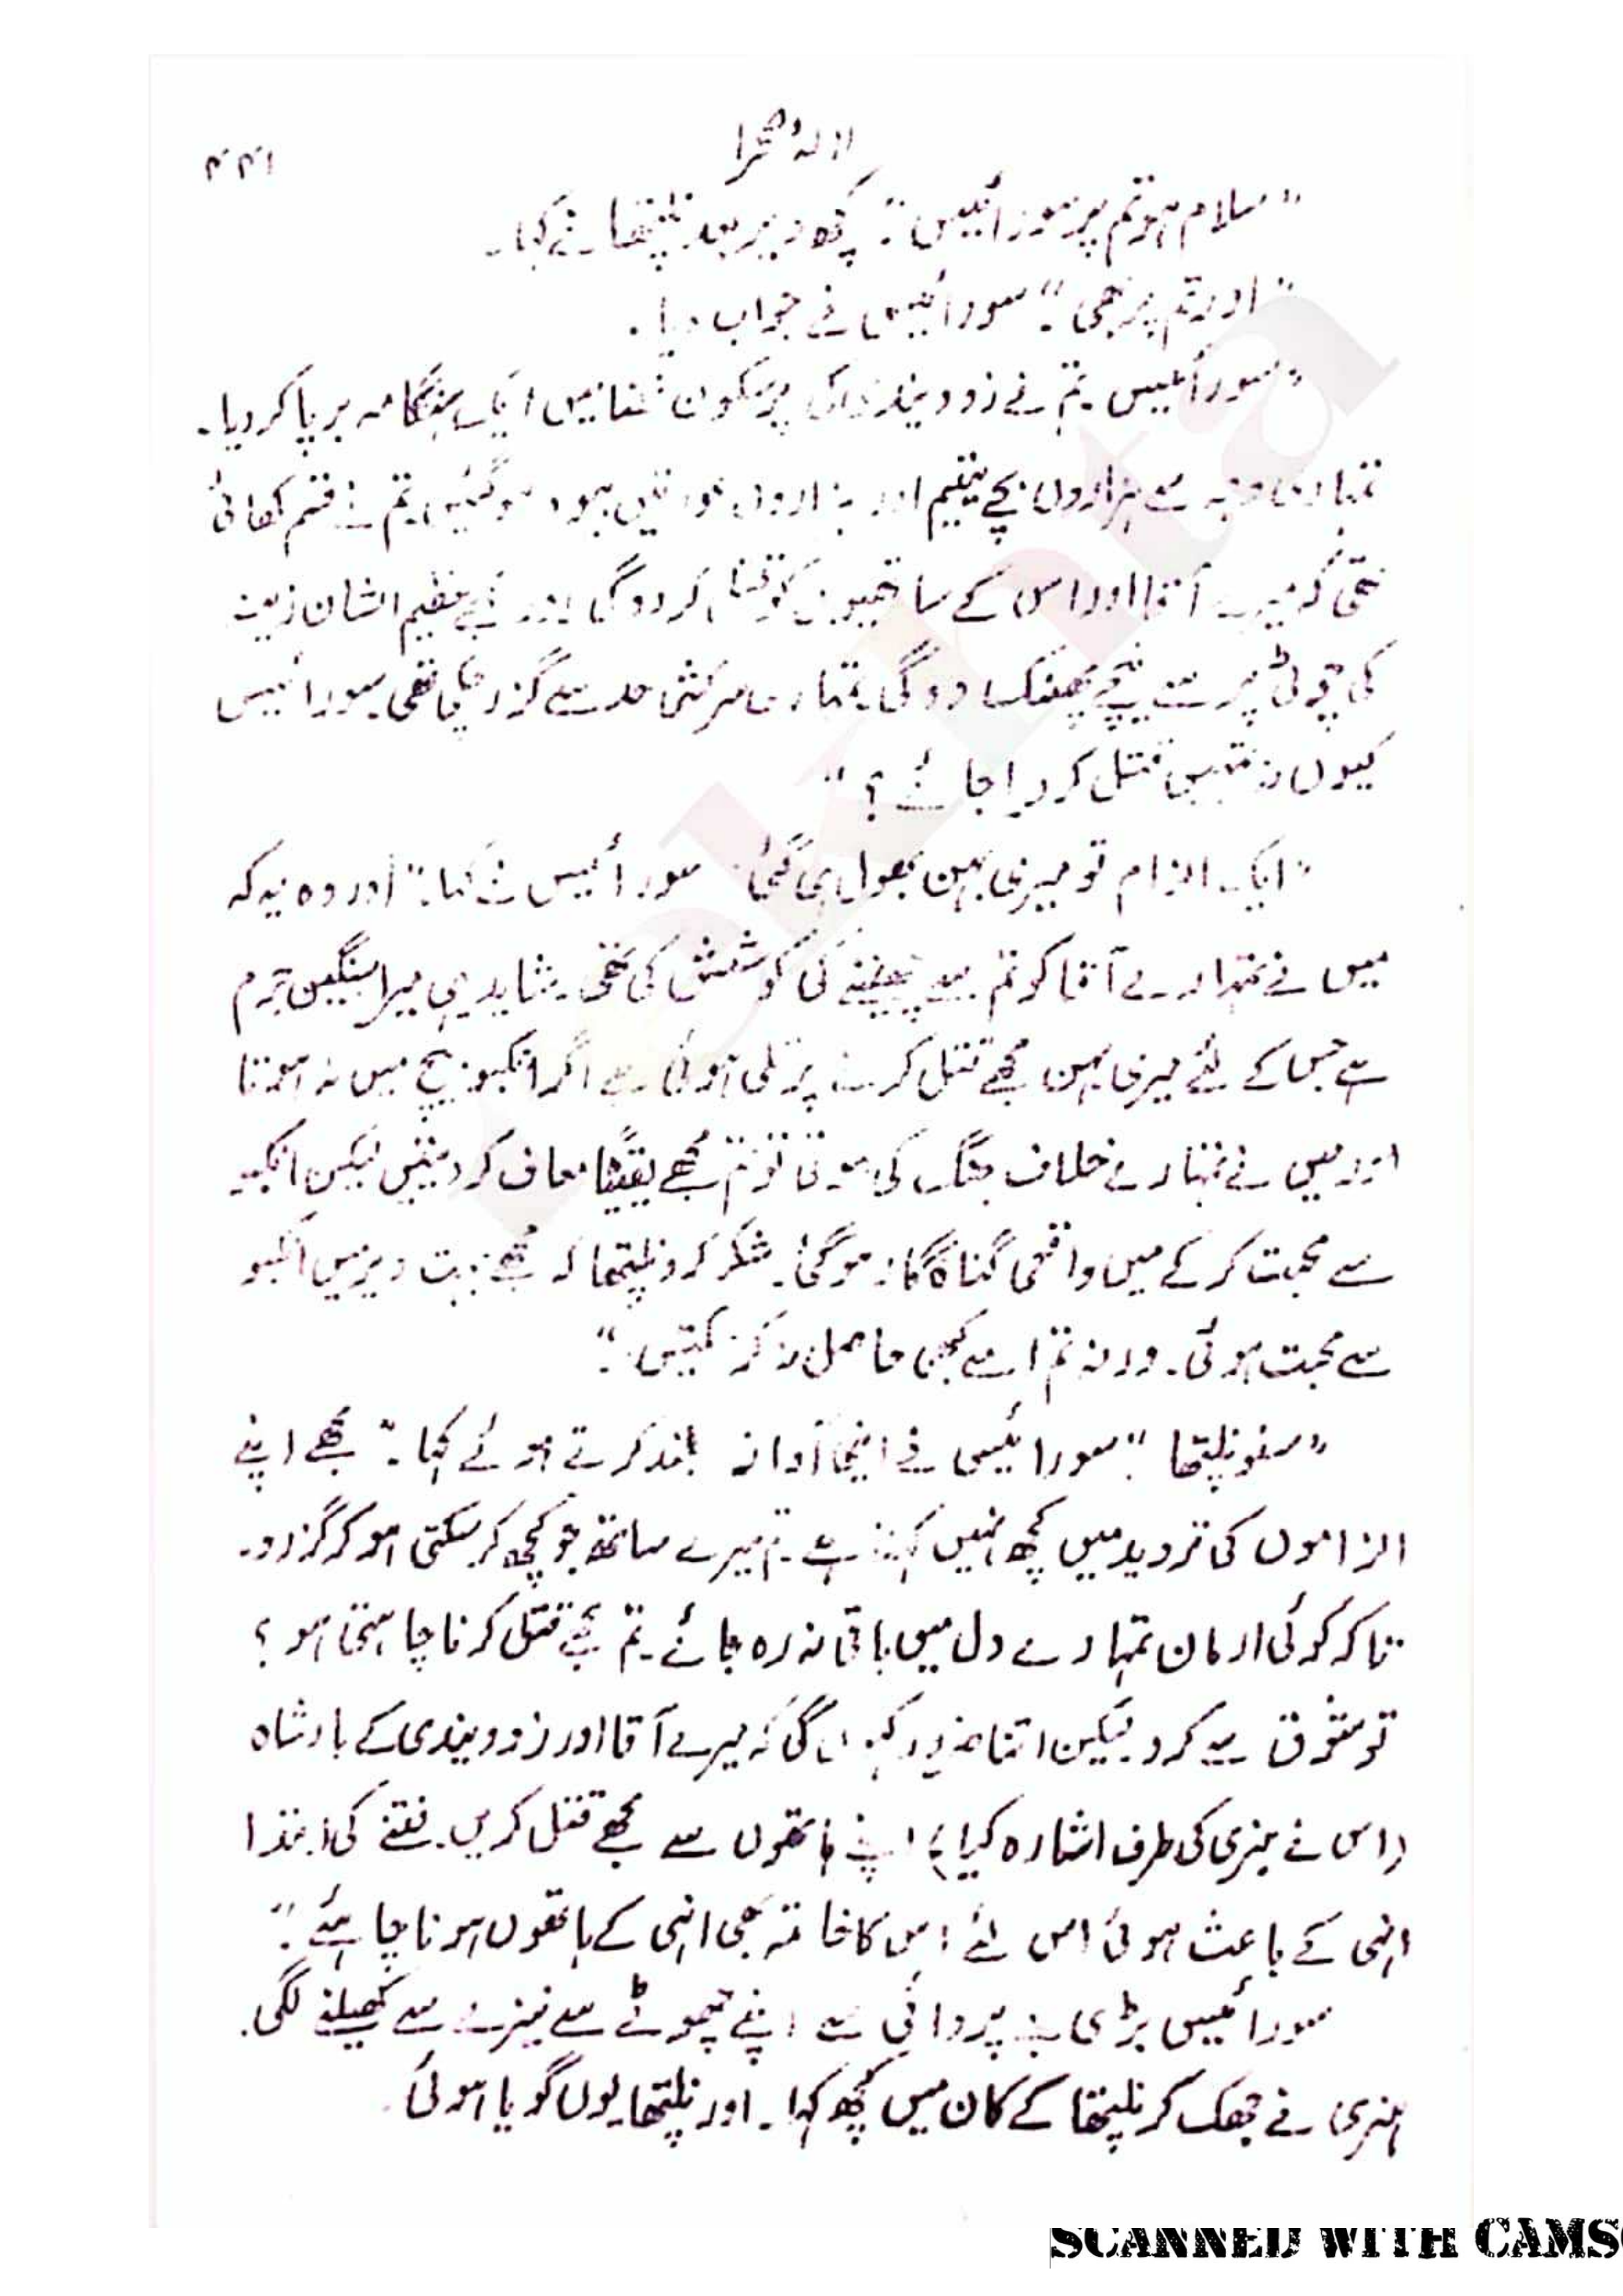 لالۂ صحرا
۴۴۱
"سلام ہو تم پر سورائیس"۔ کچھ دیر بعد نلپتھا نے کہا۔
"اور تم پر بھی"۔ سورائیس نے جواب دیا۔
"سورائیس۔ تم نے زوویندی کی پرسکون فضا میں ایک ہنگامہ برپا کر دیا۔
تمہاری وجہ سے ہزاروں بچے یتیم اور ہزاروں عورتیں بیوہ ہو گئیں۔ تم نے قسم کھائی
تھی کہ میرے آقا اور اس کے ساتھیوں کو قتل کر دوگی اور مجھے عظیم الشان زینے
کی چوٹی پر سے نیچے پھینک دو گی۔ تمہاری سرکشی حد سے گزر چکی تھی۔ سورائیس
کیوں نہ تمہیں قتل کر دیا جائے؟"
"ایک الزام تو میری بہن بھول ہی گئی" سورائیس نے کہا۔ "اور وہ یہ کہ
میں نے تمہارے آقا کو تم سے چھیننے کی کوشش کی تھی۔ شاید یہی میرا سنگین جرم
ہے جس کے لئے میری بہن مجھے قتل کرنے پر تلی ہوئی ہے اگر انکبو بیچ میں نہ ہوتا
اور میں نے تمہارے خلاف جنگ کی ہوتی تو تم مجھے یقیناً معاف کر دیتیں لیکن انکبو
سے محبت کر کے میں واقعی گناہ گار ہو گئی۔ شکر کرو نلپتھا کہ مجھے بہت دیر میں انکبو
سے محبت ہوئی۔ ورنہ تم اسے کبھی حاصل نہ کر سکتیں"۔
"سنو نلپتھا"۔ سورائیس نے اپنی آواز بلند کرتے ہوئے کہا۔ "مجھے اپنے
الزاموں کی تردید میں کچھ نہیں کہنا ہے۔ تم میرے ساتھ جو کچھ کر سکتی ہو کر گزرو۔
تاکہ کوئی ارمان تمہارے دل میں باقی نہ رہ جائے۔ تم مجھے قتل کرنا چاہتی ہو؟
تو شوق سے کرو۔ لیکن اتنا ضرور کہوں گی کہ میرے آقا اور زوویندی کے بادشاہ
(اس نے ہنری کی طرف اشارہ کیا) اپنے ہاتھوں سے مجھے قتل کریں۔ فتنے کی ابتدا
انہی کے باعث ہوئی اس لئے اس کا خاتمہ بھی انہی کے ہاتھوں ہونا چاہئے"۔
سورائیس بڑی بے پروائی سے اپنے چھوٹے سے نیزے سے کھیلنے لگی۔
ہنری نے جھک کر نلپتھا کے کان میں کچھ کہا۔ اور نلپتھا یوں گویا ہوئی۔
SCANNED WITH CAMS